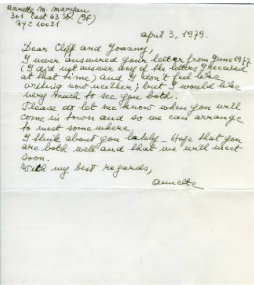 Annette M.
301 East 63 St. (9E)
NYC 10021
April 3, 1979.
Dear Cliff and Yoanny,
I never answered your letter from June 1977
(I did not answer any of the letters I received
at that time) and I don't feel like
writing now neither; but I would like
very much to see you both.
Please do let me know when you will
come in town and so we can arrange
to meet somewhere.
I think about you lately - Hope that you
are both well and that we will meet
soon.
With my best regards,
Annette